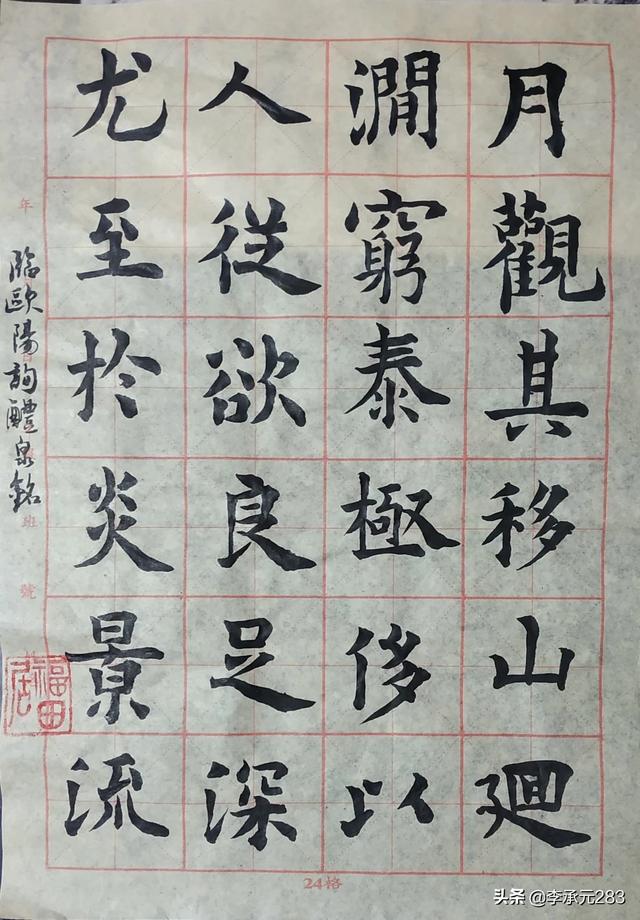 月觀其移山廻
澗窮泰極侈以
人從欲良足深
尤至於炎景流
臨歐陽詢醴泉銘
年
班
號
福田
24格
头条 @李承元283